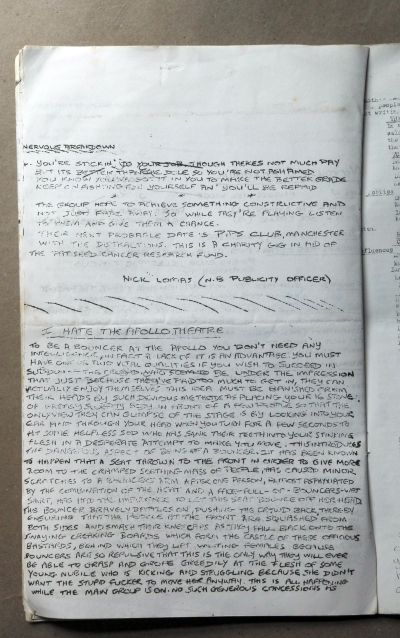 NERVOUS BREAKDOWN
YOU'RE STICKIN' TO YOUR JOB, THOUGH THERES NOT MUCH PAY
BUT ITS BETTER THAN THE DOLE SO YOU'RE NOT ASHAMED
YOU KNOW YOU'VE GOT IT IN YOU TO MAKE THE BETTER GRADE
KEEP ON FIGHTING FOR YOURSELF AN' YOU'LL BE REPAID
THE GROUP HOPE TO ACHIEVE SOMETHING CONSTRUCTIVE AND
NOT JUST FADE AWAY. SO WHILE THEY'RE PLAYING LISTEN
TO THEM AND GIVE THEM A CHANCE.
THEIR NEXT PROBABLE DATE IS PIPS CLUB, MANCHESTER
WITH THE DISTRACTIONS. THIS IS A CHARITY GIG IN AID OF
THE CANCER RESEARCH FUND.
NICK (N.B PUBLICITY OFFICER)
I HATE THE APOLLO THEATRE
TO BE A BOUNCER AT THE APOLLO YOU DON'T NEED ANY
INTELLIGENCE, IN FACT A LACK OF IT IS AN ADVANTAGE. YOU MUST
HAVE ONE OR TWO VITAL QUALITIES IF YOU WISH TO SUCCEED IN
UNDER THE IMPRESSION
THAT JUST BECAUSE THEY'VE PAID TOO MUCH TO GET IN, THEY CAN
ACTUALLY ENJOY THEMSELVES. THIS IDEA MUST BE BANISHED FROM
THEIR HEADS BY SUCH DEVIOUS METHODS AS PLACING YOUR 16 STONE
OF BODY IN FRONT OF A FEW PEOPLE SO THAT THE
ONLY VIEW THEY CAN GLIMPSE OF THE STAGE IS BY LOOKING INTO YOUR
EAR AND THROUGH YOUR HEAD WHEN YOU TURN FOR A FEW SECONDS TO
HIT SOME HELPLESS SOD WHO HAS SANK THEIR TEETH INTO YOUR STINKING
FLESH IN A DESPERATE ATTEMPT TO MAKE YOU MOVE. THIS INTRODUCES
THE DANGEROUS ASPECT OF BEING A BOUNCER. IT HAS BEEN KNOWN
TO HAPPEN THAT A SEAT THROWN TO THE FRONT IN ORDER TO GIVE MORE
ROOM TO THE CRAMPED SEETHING MASS OF PEOPLE, HAS CAUSED MINOR
SCRATCHES TO A BOUNCERS ARM AFTER ONE PERSON, ALMOST ASPHYXIATED
BY THE COMBINATION OF THE HEAT AND A FACE-FULL-OF-BOUNCERS-
SHIRT, HAS HAD THE IMPATIENCE TO LET THIS SEAT BOUNCE OFF HER HEAD.
THIS BOUNCER BRAVELY BATTLES ON, PUSHING THE CROWD BACK, THEREBY
ENSURING THAT THE PEOPLE AT THE FRONT ARE SQUASHED FROM
BOTH SIDES AND SMASH THEIR KNEECAPS AS THEY FALL BACK ONTO THE
SWAYING CREAKING BOARDS WHICH FORM THE CASTLE OF THESE OFFICIOUS
BASTARDS, BEHIND WHICH THEY LIFT WILTING FEMALES BECAUSE
BOUNCERS ARE SO REPULSIVE THAT THIS IS THE ONLY WAY THEY WILL EVER
BE ABLE TO GRASP AND GROPE GREEDILY AT THE FLESH OF SOME
YOUNG NUBILE WHO IS KICKING AND STRUGGLING BECAUSE SHE DIDN'T
WANT THE STUPID FUCKER TO MOVE HER ANYWAY. THIS IS ALL HAPPENING
WHILE THE MAIN GROUP IS ON. NO SUCH GENEROUS CONCESSIONS AS